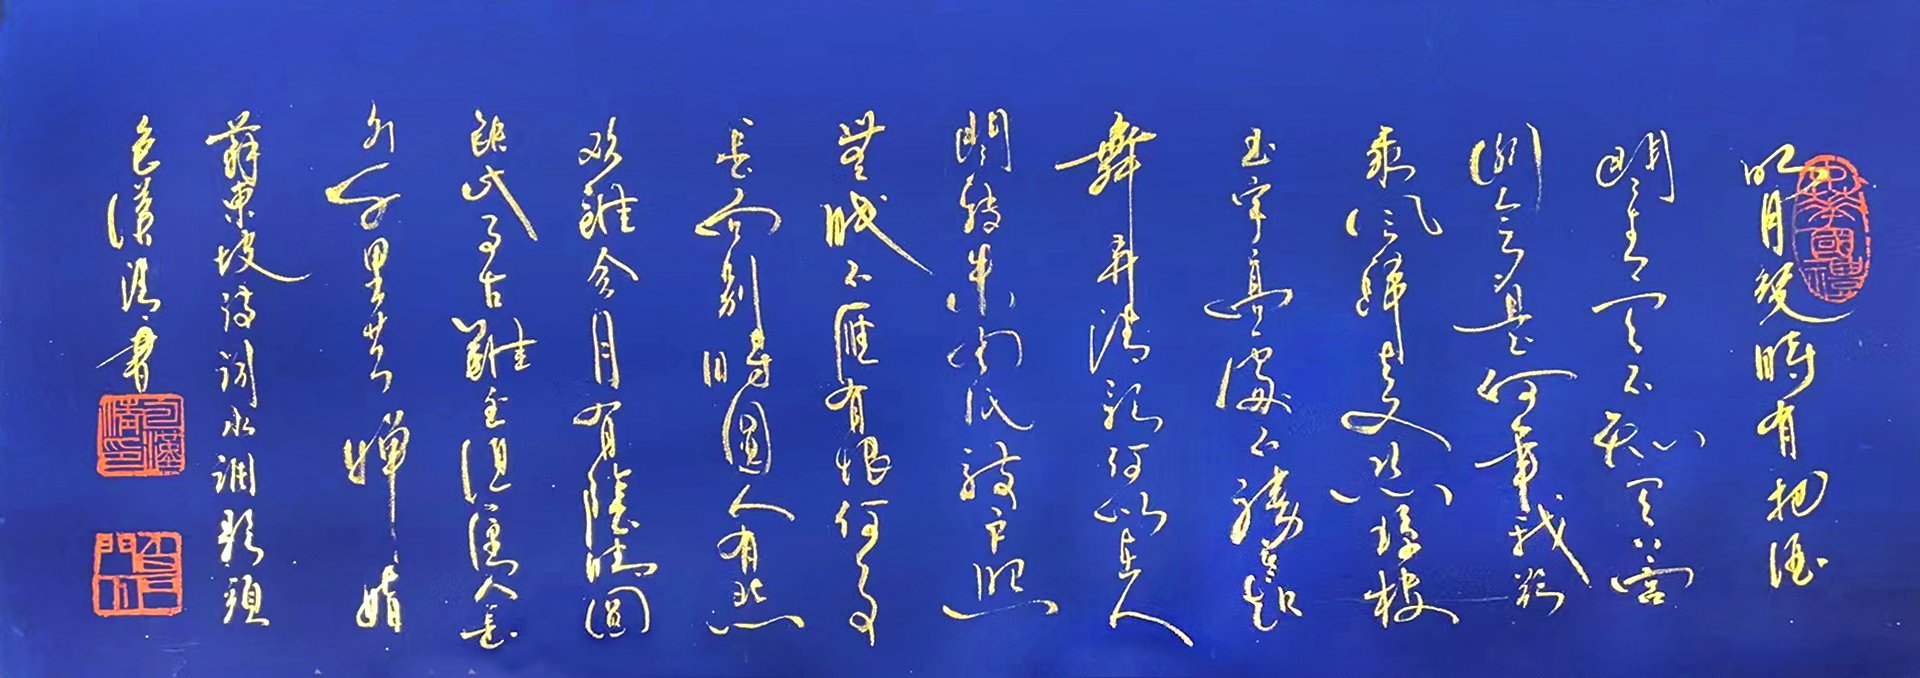 明月幾時有把酒
問青天不知天上宮
闕今夕是何年我欲
乘風歸去又恐瓊樓
玉宇高處不勝寒起
舞弄清影何似在人
間轉朱閣低綺戶照
無眠不應有恨何事
長向別時圓人有悲
歡離合月有陰晴圓
缺此事古難全但願人長
久千里共嬋娟
蘇東坡詩詞水調歌頭
包漢清書
包漢清印